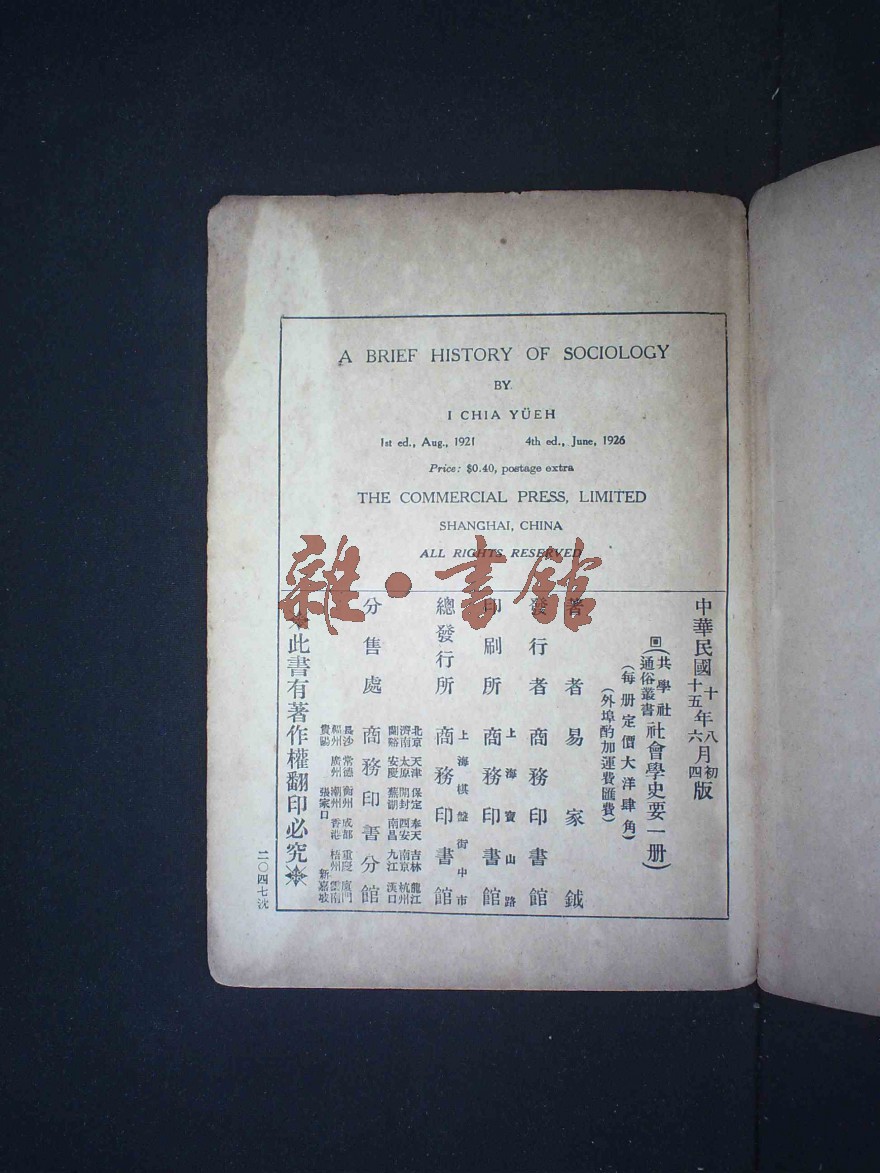 A BRIEF HISTORY OF SOCIOLOGY
BY
I CHIA YÜEH
1st ed., Aug., 1921 4th ed., June, 1926
Price: $0.40, postage extra
THE COMMERCIAL PRESS, LIMITED
SHANGHAI, CHINA
ALL RIGHTS RESERVED
雜·書館
中華民國十年八月初版
十五年六月四版
(共學社通俗叢書社會學史要一册)
(每册定價大洋肆角)
(外埠酌加運費匯費)
著者 易家鉞
發行者 商務印書館
印刷所 上海寶山路 商務印書館
總發行所 上海棋盤街中市 商務印書館
分售處 商務印書分館
北京 天津 保定 奉天 吉林 龍江
濟南 太原 開封 西安 南京 杭州
蘭谿 安慶 蕪湖 南昌 九江 漢口
長沙 常德 衡州 成都 重慶 廈門
福州 廣州 潮州 香港 梧州 雲南
貴陽 張家口 新嘉坡
此書有著作權翻印必究
二〇四七沈